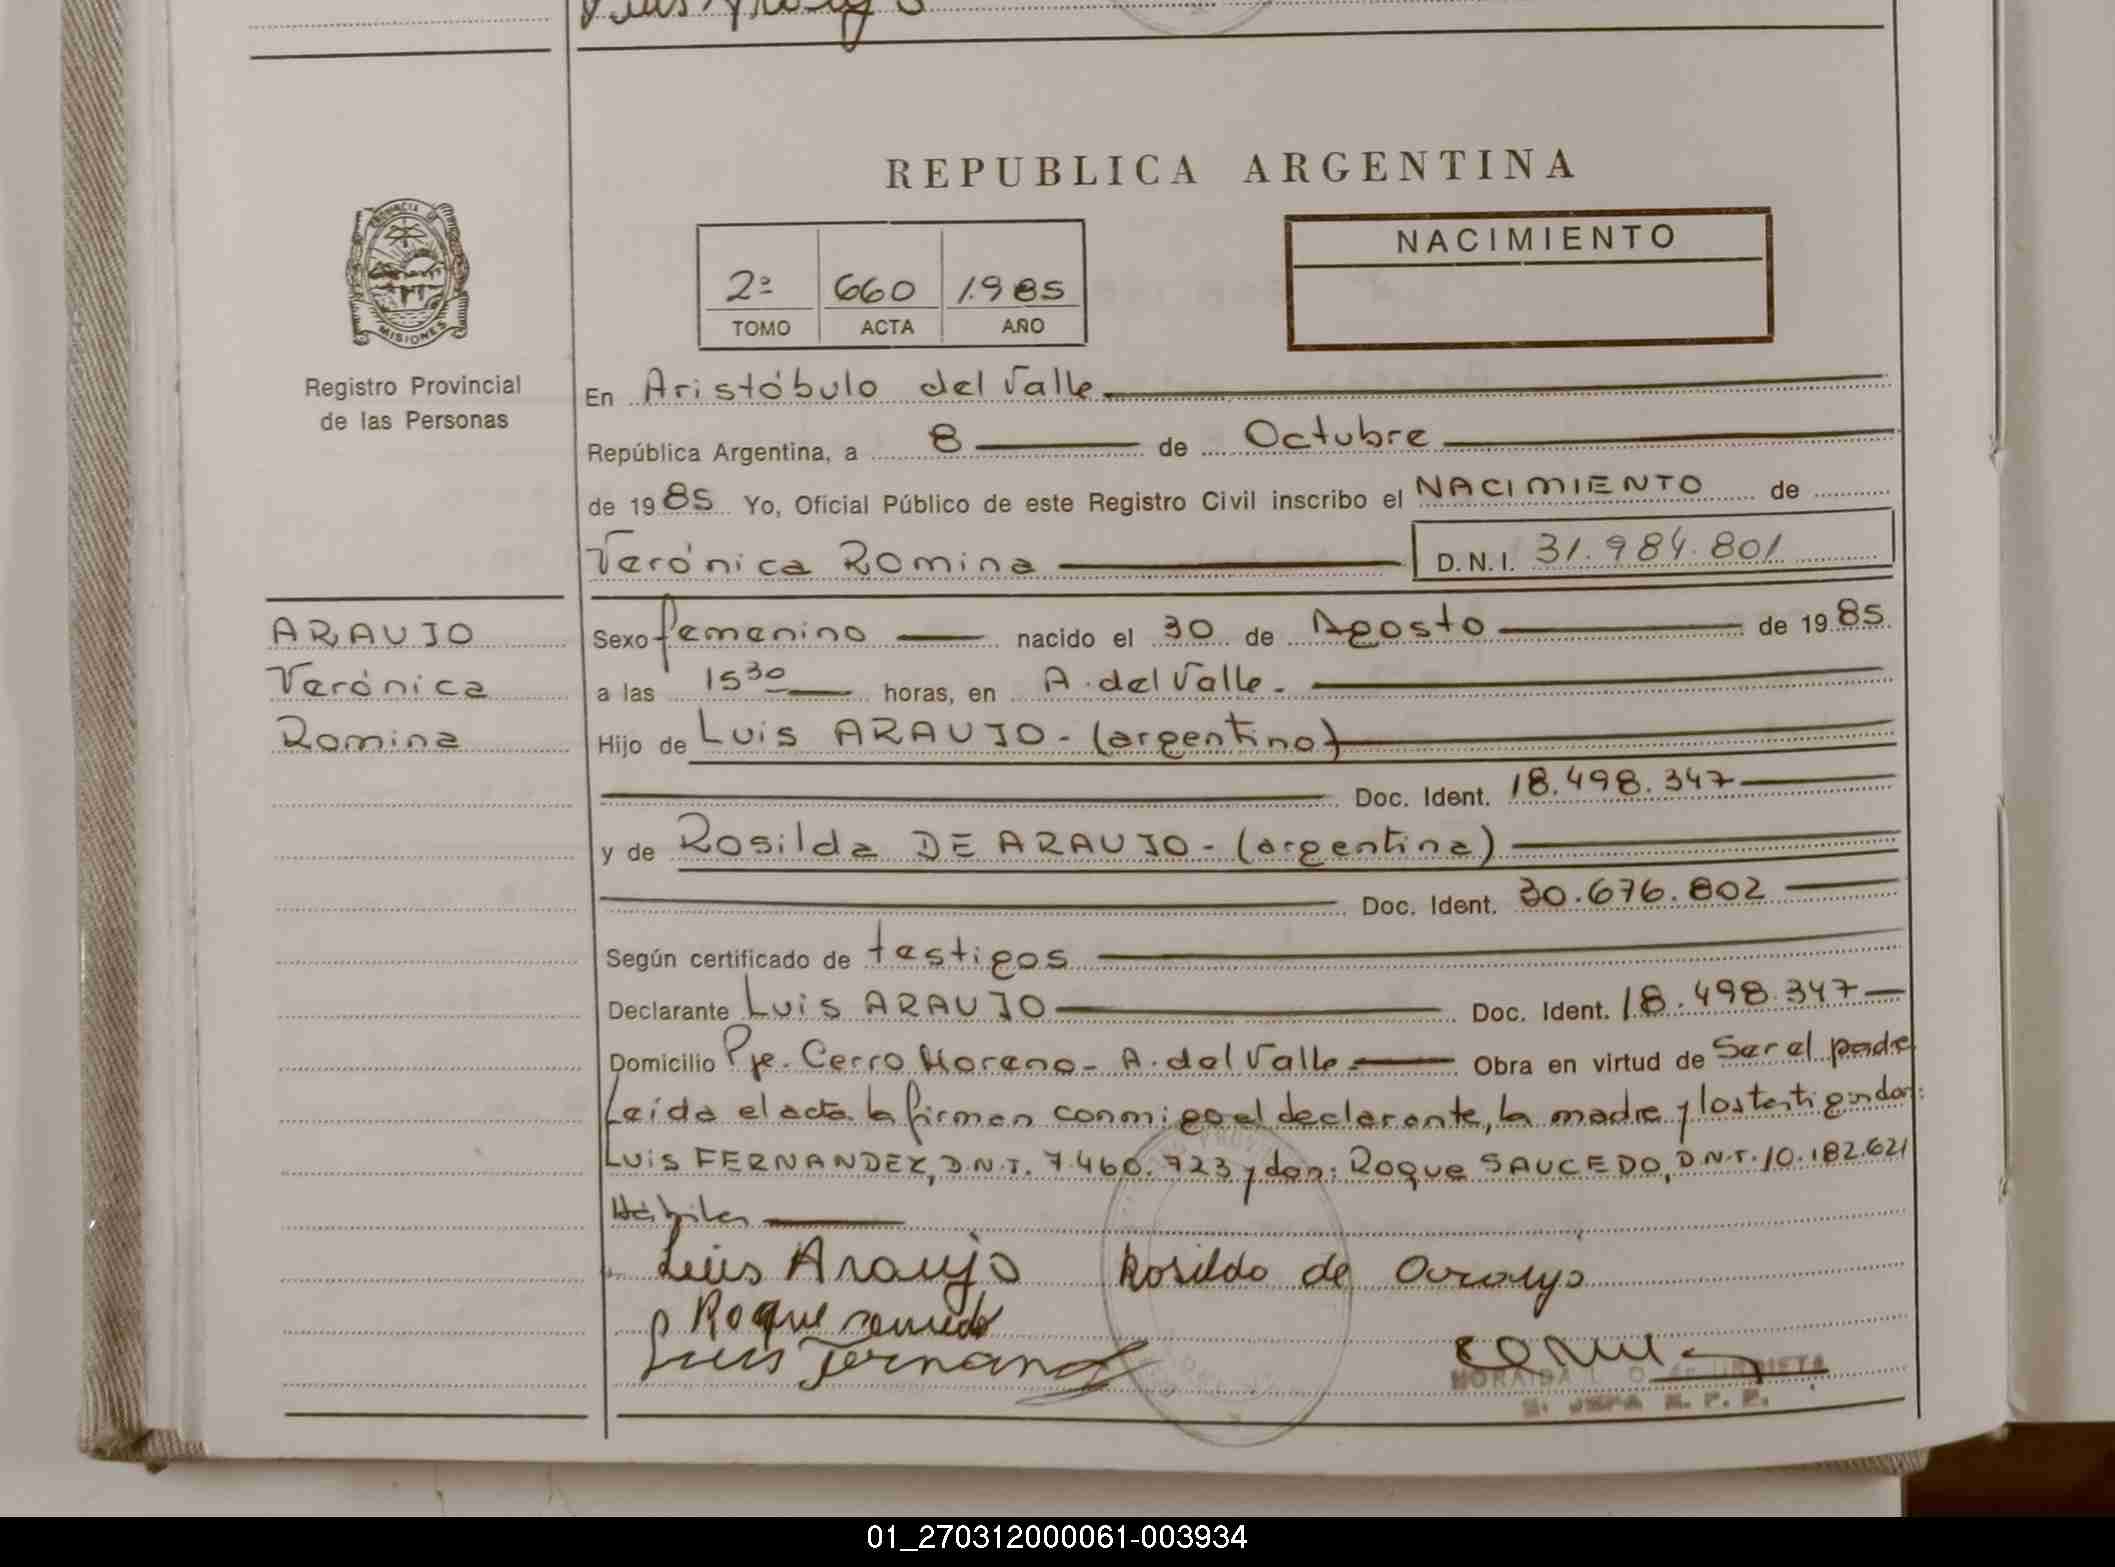 REPUBLICA ARGENTINA
PROVINCIA DE
MISIONES
Registro Provincial
de las Personas
2º 660 1.985
TOMO ACTA AÑO
NACIMIENTO
En Aristóbulo del Valle
República Argentina, a 8 de Octubre
de 1985 Yo, Oficial Público de este Registro Civil inscribo el NACIMIENTO de
Verónica Romina D.N.I. 31.984.801
ARAUJO
Verónica
Romina
Sexo femenino nacido el 30 de Agosto de 1985
a las 15 30 horas, en A. del Valle.
Hijo de Luis ARAUJO - (argentino)
Doc. Ident. 18.498.347
y de Rosilda DE ARAUJO - (argentina)
Doc. Ident. 30.676.802
Según certificado de testigos
Declarante Luis ARAUJO Doc. Ident. 18.498.347
Domicilio Pje. Cerro Moreno - A. del Valle Obra en virtud de Ser el padre
Leída el acta la firman conmigo el declarante, la madre y los testigos don:
Luis FERNANDEZ, D.N.I. 7.460.723 y don: Roque SAUCEDO, D.N.I. 10.182.621
Hábiles
Luis Araujo Rosilda de Araujo
Roque
Luis Fernand
01_270312000061-003934